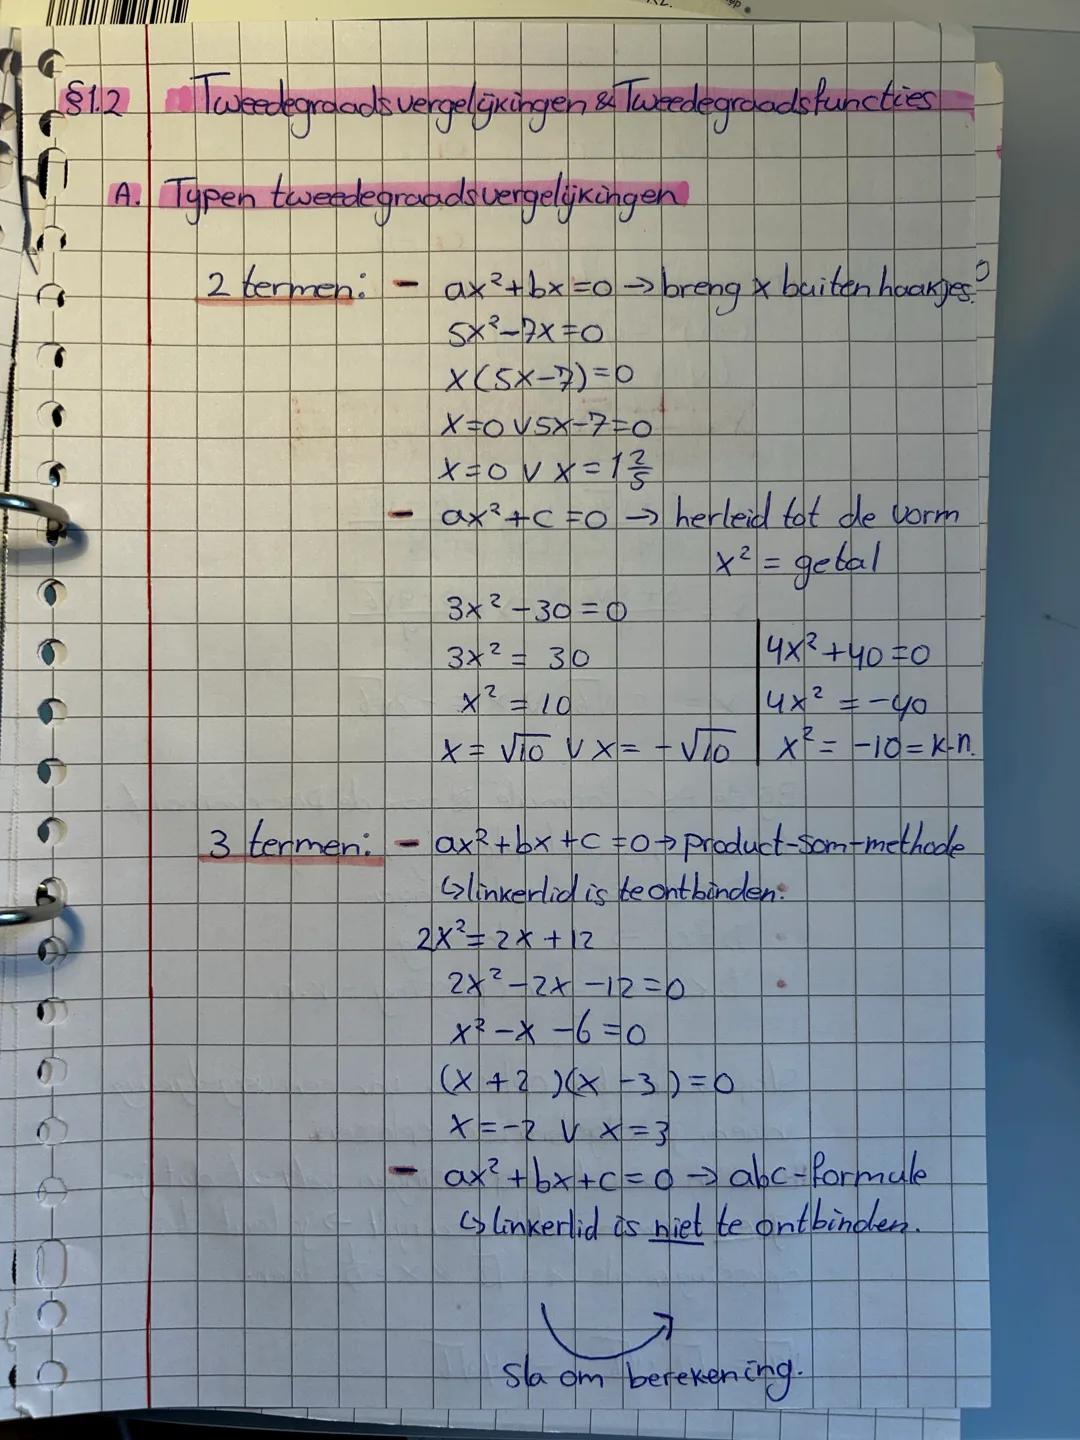 §1.2 Tweedegraadsvergelijkingen & Tweedegraadsfuncties
A. Typen tweedegraadsvergelijkingen
2 termen: - ax²+bx=0 → breng x buiten haakjes.
5x²-7x=0
x(5x-7)=0
x=0 ∨ 5x-7=0
x=0 ∨ x=1 2/5
- ax²+c=0 → herleid tot de vorm
x² = getal
3x²-30=0
3x² = 30
x² = 10
x = √10 ∨ x = -√10
4x²+40=0
4x² = -40
x² = -10 = k.n.
3 termen: - ax²+bx+c=0 → product-som-methode
↳ linkerlid is te ontbinden.
2x² = 2x+12
2x²-2x-12=0
x²-x-6=0
(x+2)(x-3)=0
x=-2 ∨ x=3
- ax²+bx+c=0 → abc-formule
↳ linkerlid is niet te ontbinden.
Sla om berekening.